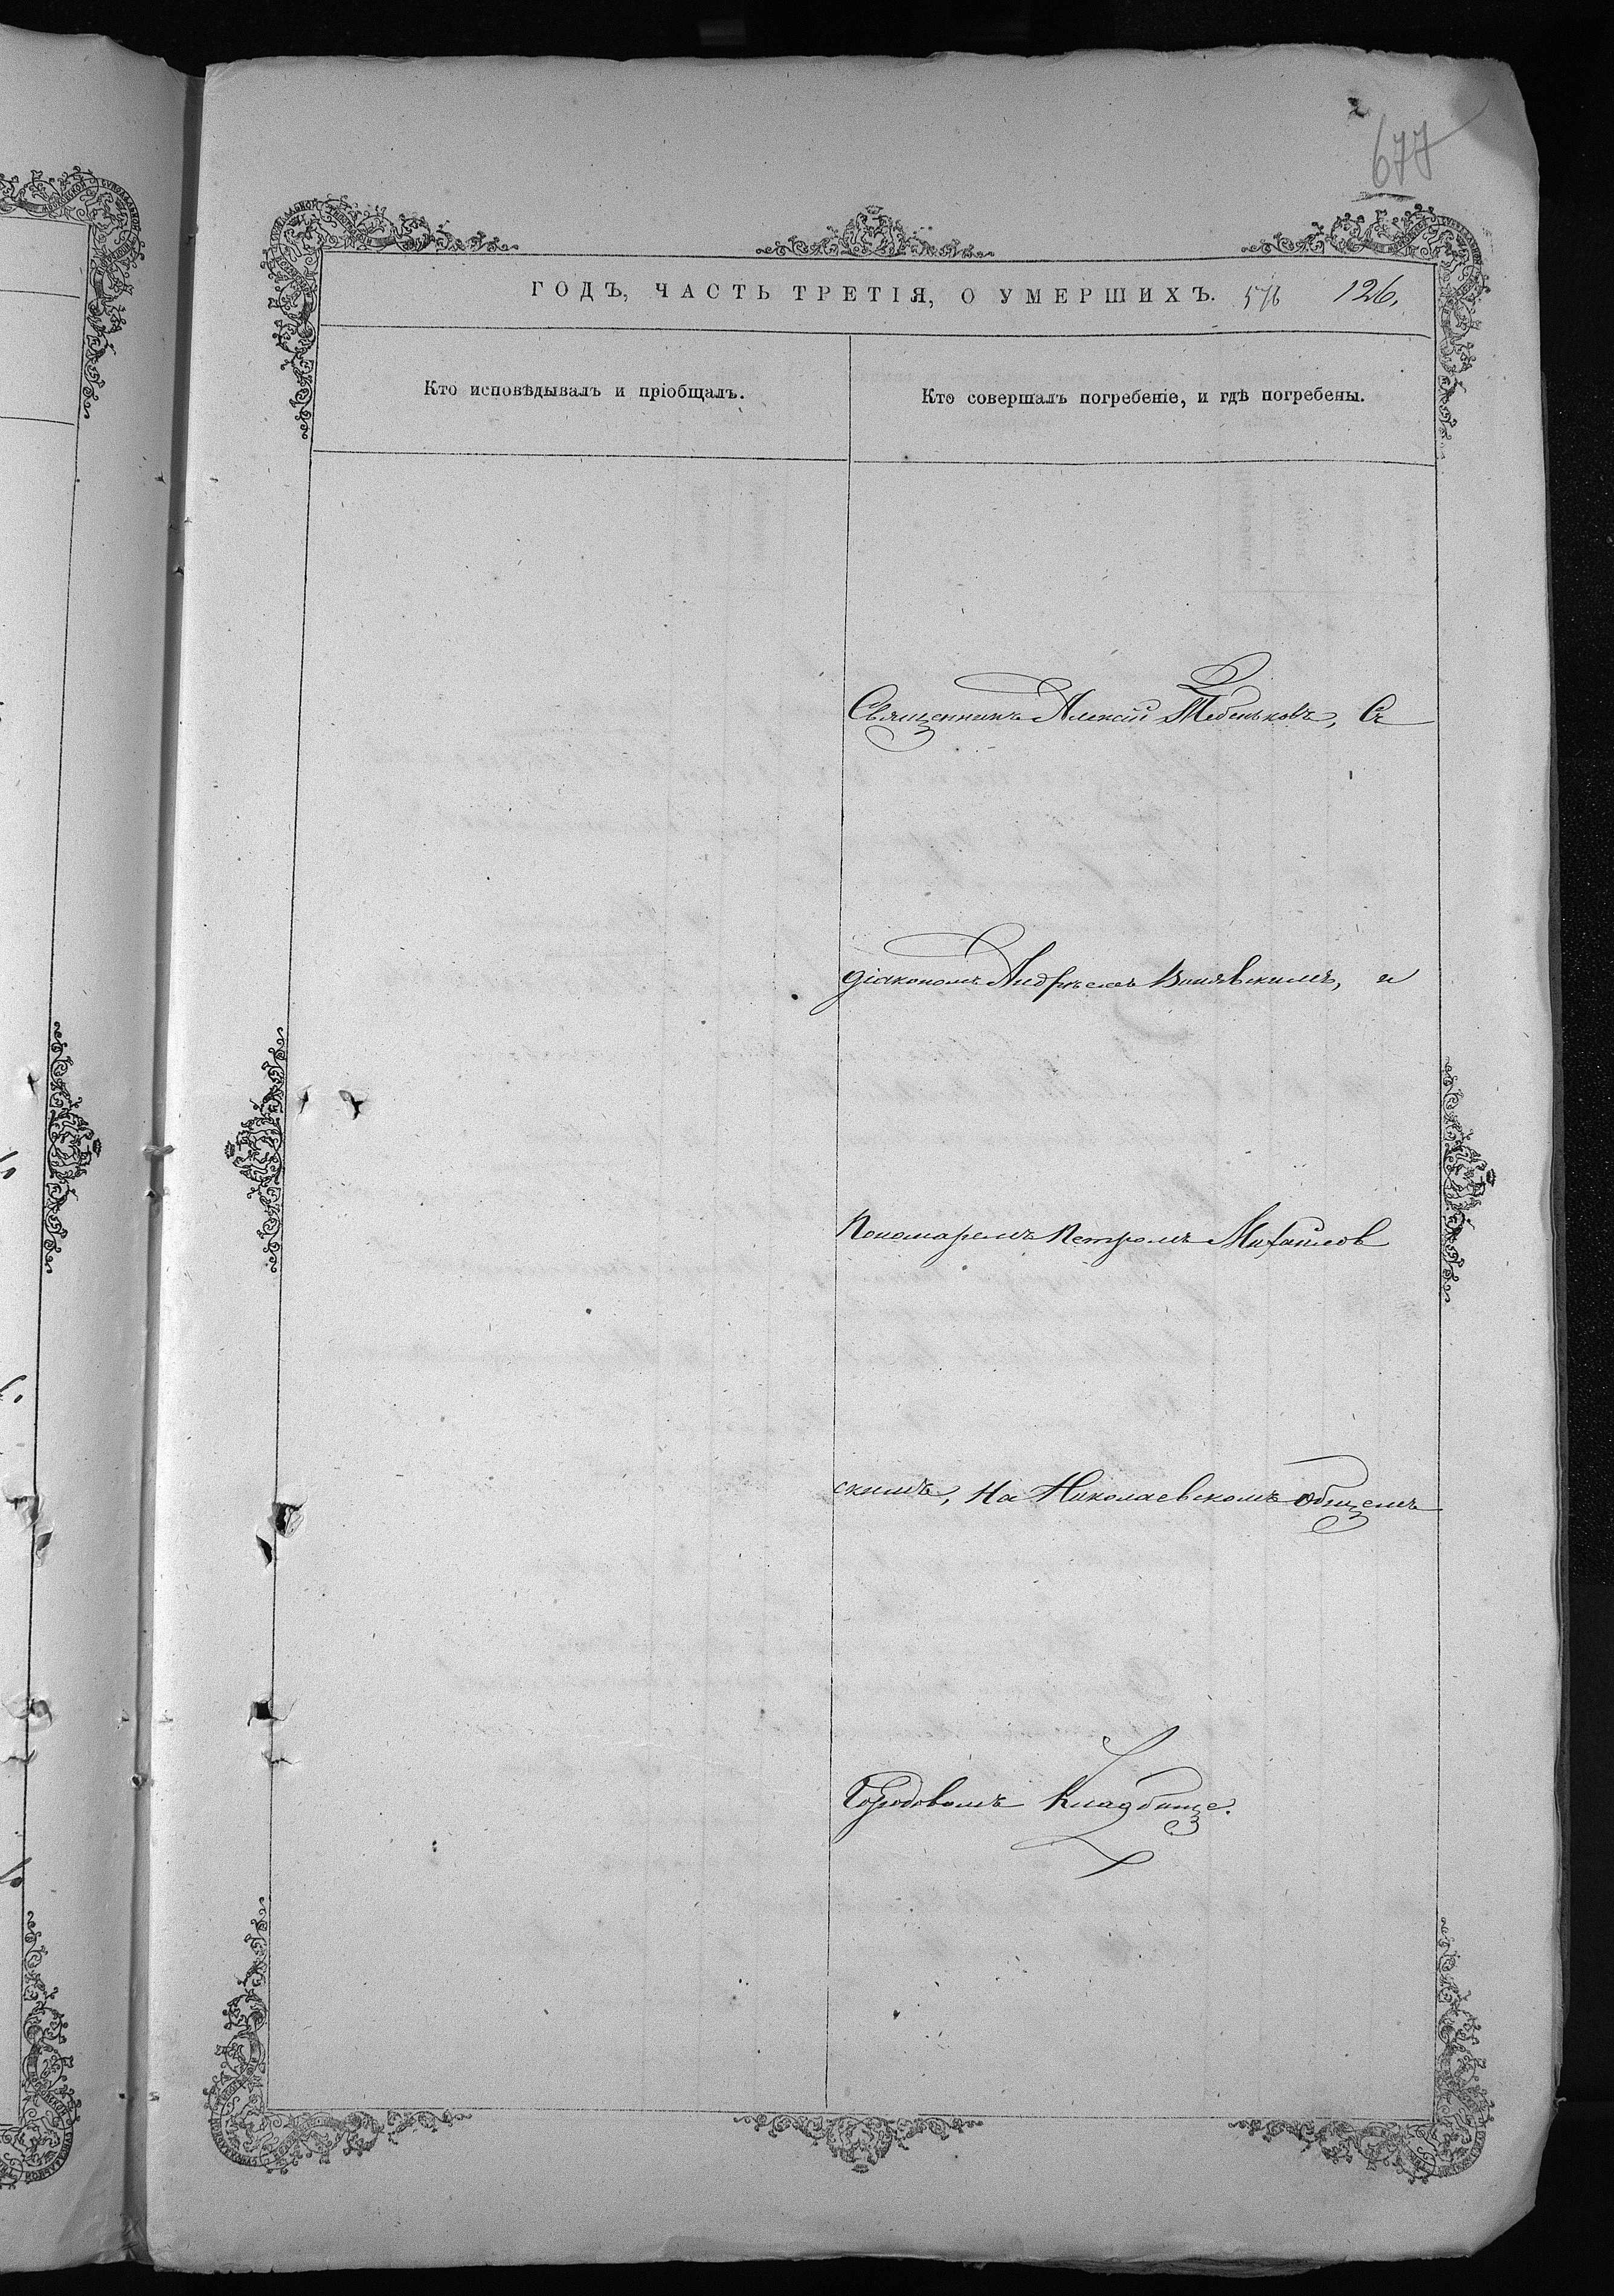 677
ГОДЪ, ЧАСТЬ ТРЕТІЯ, О УМЕРШИХЪ. 576 126,
Кто исповѣдывалъ и пріобщалъ.
Кто совершалъ погребеніе, и гдѣ погребены.
Священникъ Алексій Тебеньковъ, Съ
діакономъ Андреемъ, и
Пономаремъ Петромъ Михайлов
скимъ, На Николаевскомъ Общемъ
Городовомъ Кладбище.